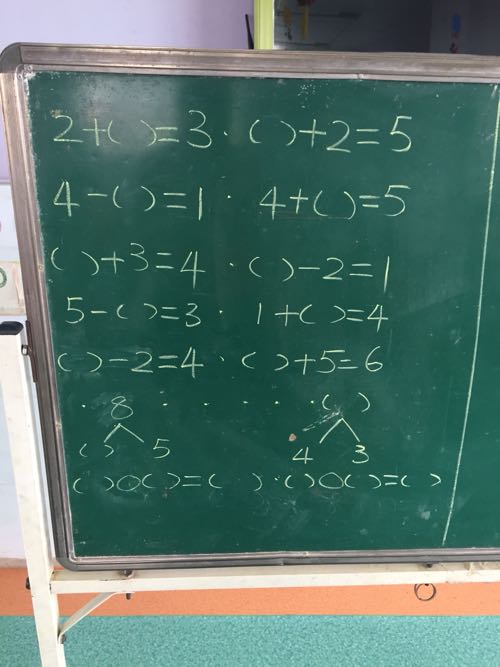 2+( )=3 · ( )+2=5
4-( )=1 · 4+( )=5
( )+3=4 · ( )-2=1
5-( )=3 · 1+( )=4
( )-2=4 · ( )+5=6
· 8 · · · · · ( )
( ) 5 4 3
( )○( )=( ) · ( )○( )=( )